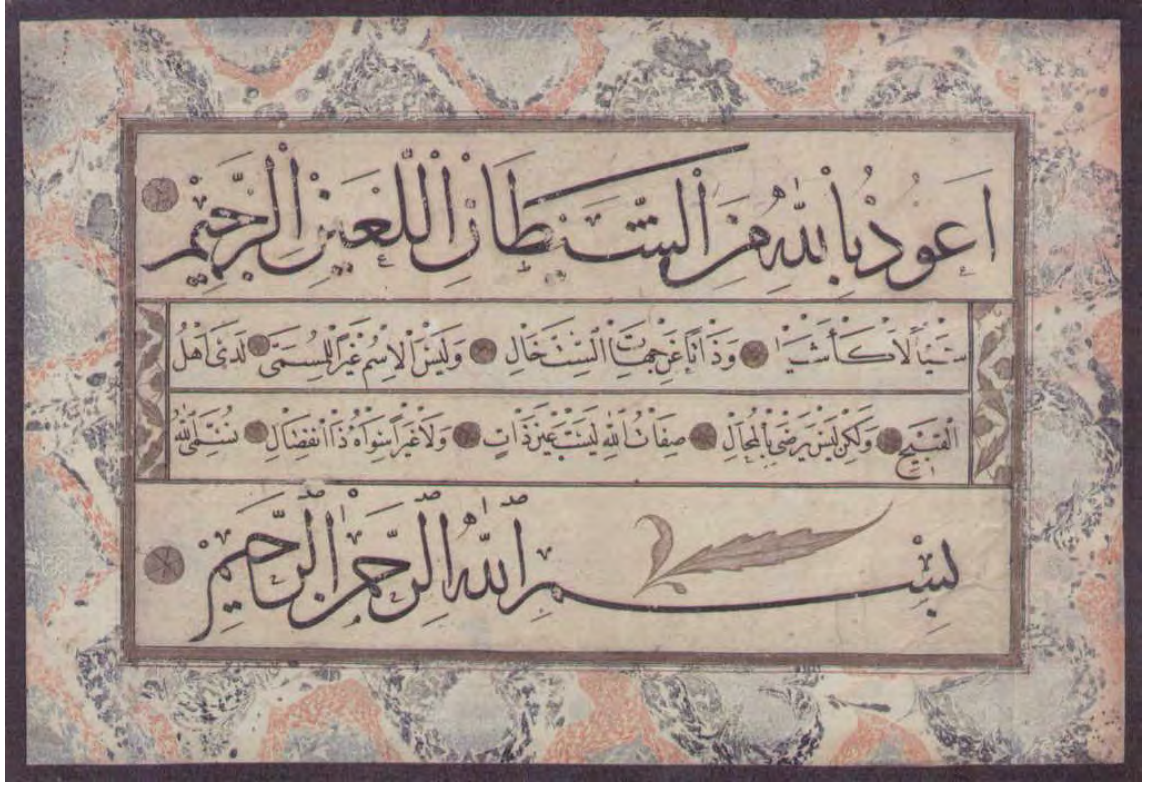 اَعُوذُ بِاللهِ مِنَ الشَّيْطَانِ اللَّعِينِ الرَّجِيمِ
شَيْئًا لَا كَأَشْيَا وَذَاتًا عَنْ جِهَاتِ السِّتِّ خَالِ وَلَيْسَ الْاِسْمُ غَيْرًا لِلْمُسَمَّى لَدَى اَهْلُ
الْقَبِيحِ وَلَكِنْ لَيْسَ يَرْضَى بِالْمُحَالِ صِفَاتُ اللهِ لَيْسَتْ عَيْنَ ذَاتٍ وَلَا غَيْرًا سِوَاهُ ذَا انْفِصَالِ نُسَمِّي اللهَ
بِسْمِ اللهِ الرَّحْمٰنِ الرَّحِيمِ